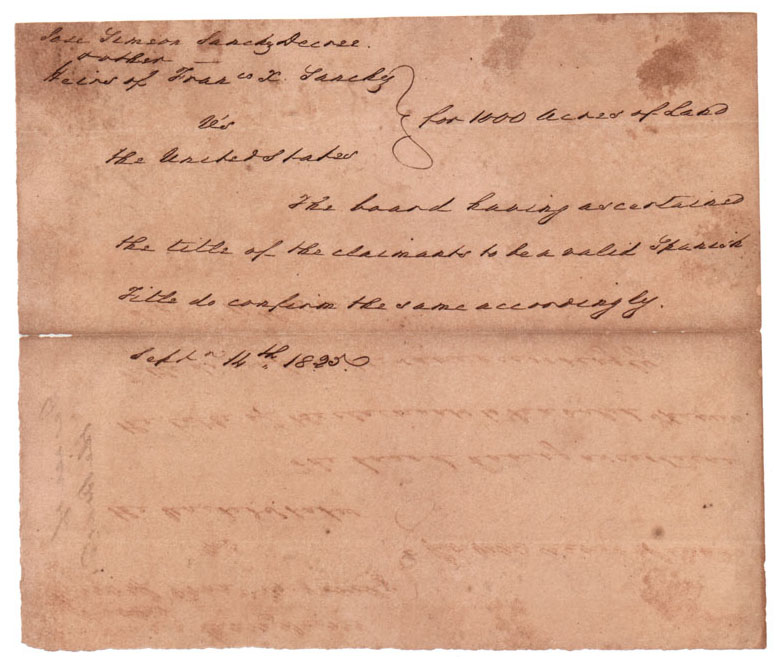 Jose Simeon Sanchz Decree.
& other
Heirs of Franco X. Sanchz
Vs
the United States
for 1000 Acres of Land
The board having ascertained
the title of the claimants to be a valid Spanish
Title do confirm the same accordingly.
Septr 14th 1825.